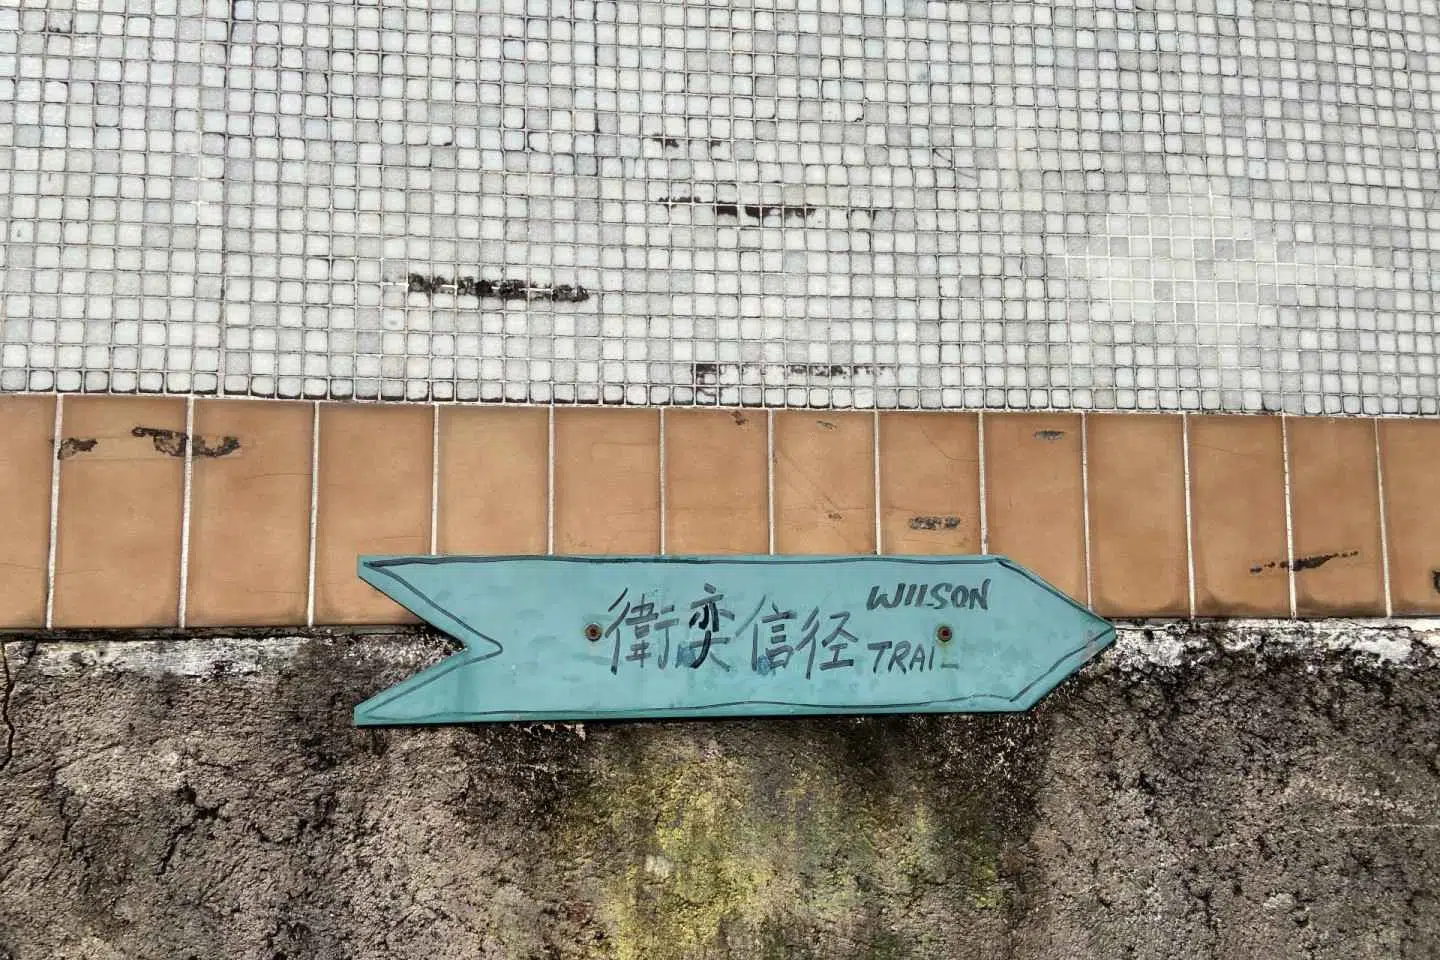 衛奕信径 WILSON
TRAIL